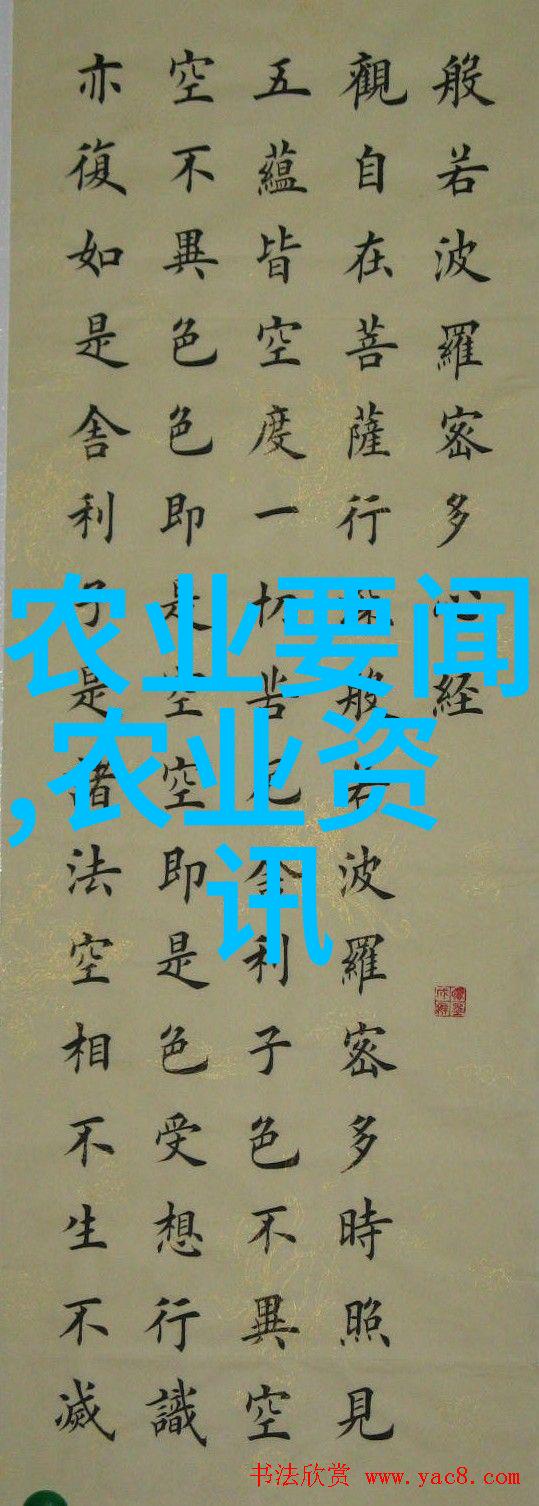 般若波羅密多心経
觀自在菩薩行深般若波羅密多時照見
五蘊皆空度一切苦厄舍利子色不異空
空不異色色即是空空即是色受想行識
亦復如是舍利子是諸法空相不生不滅
农业要闻
,农业资
讯
书法欣赏 www.yac8.com